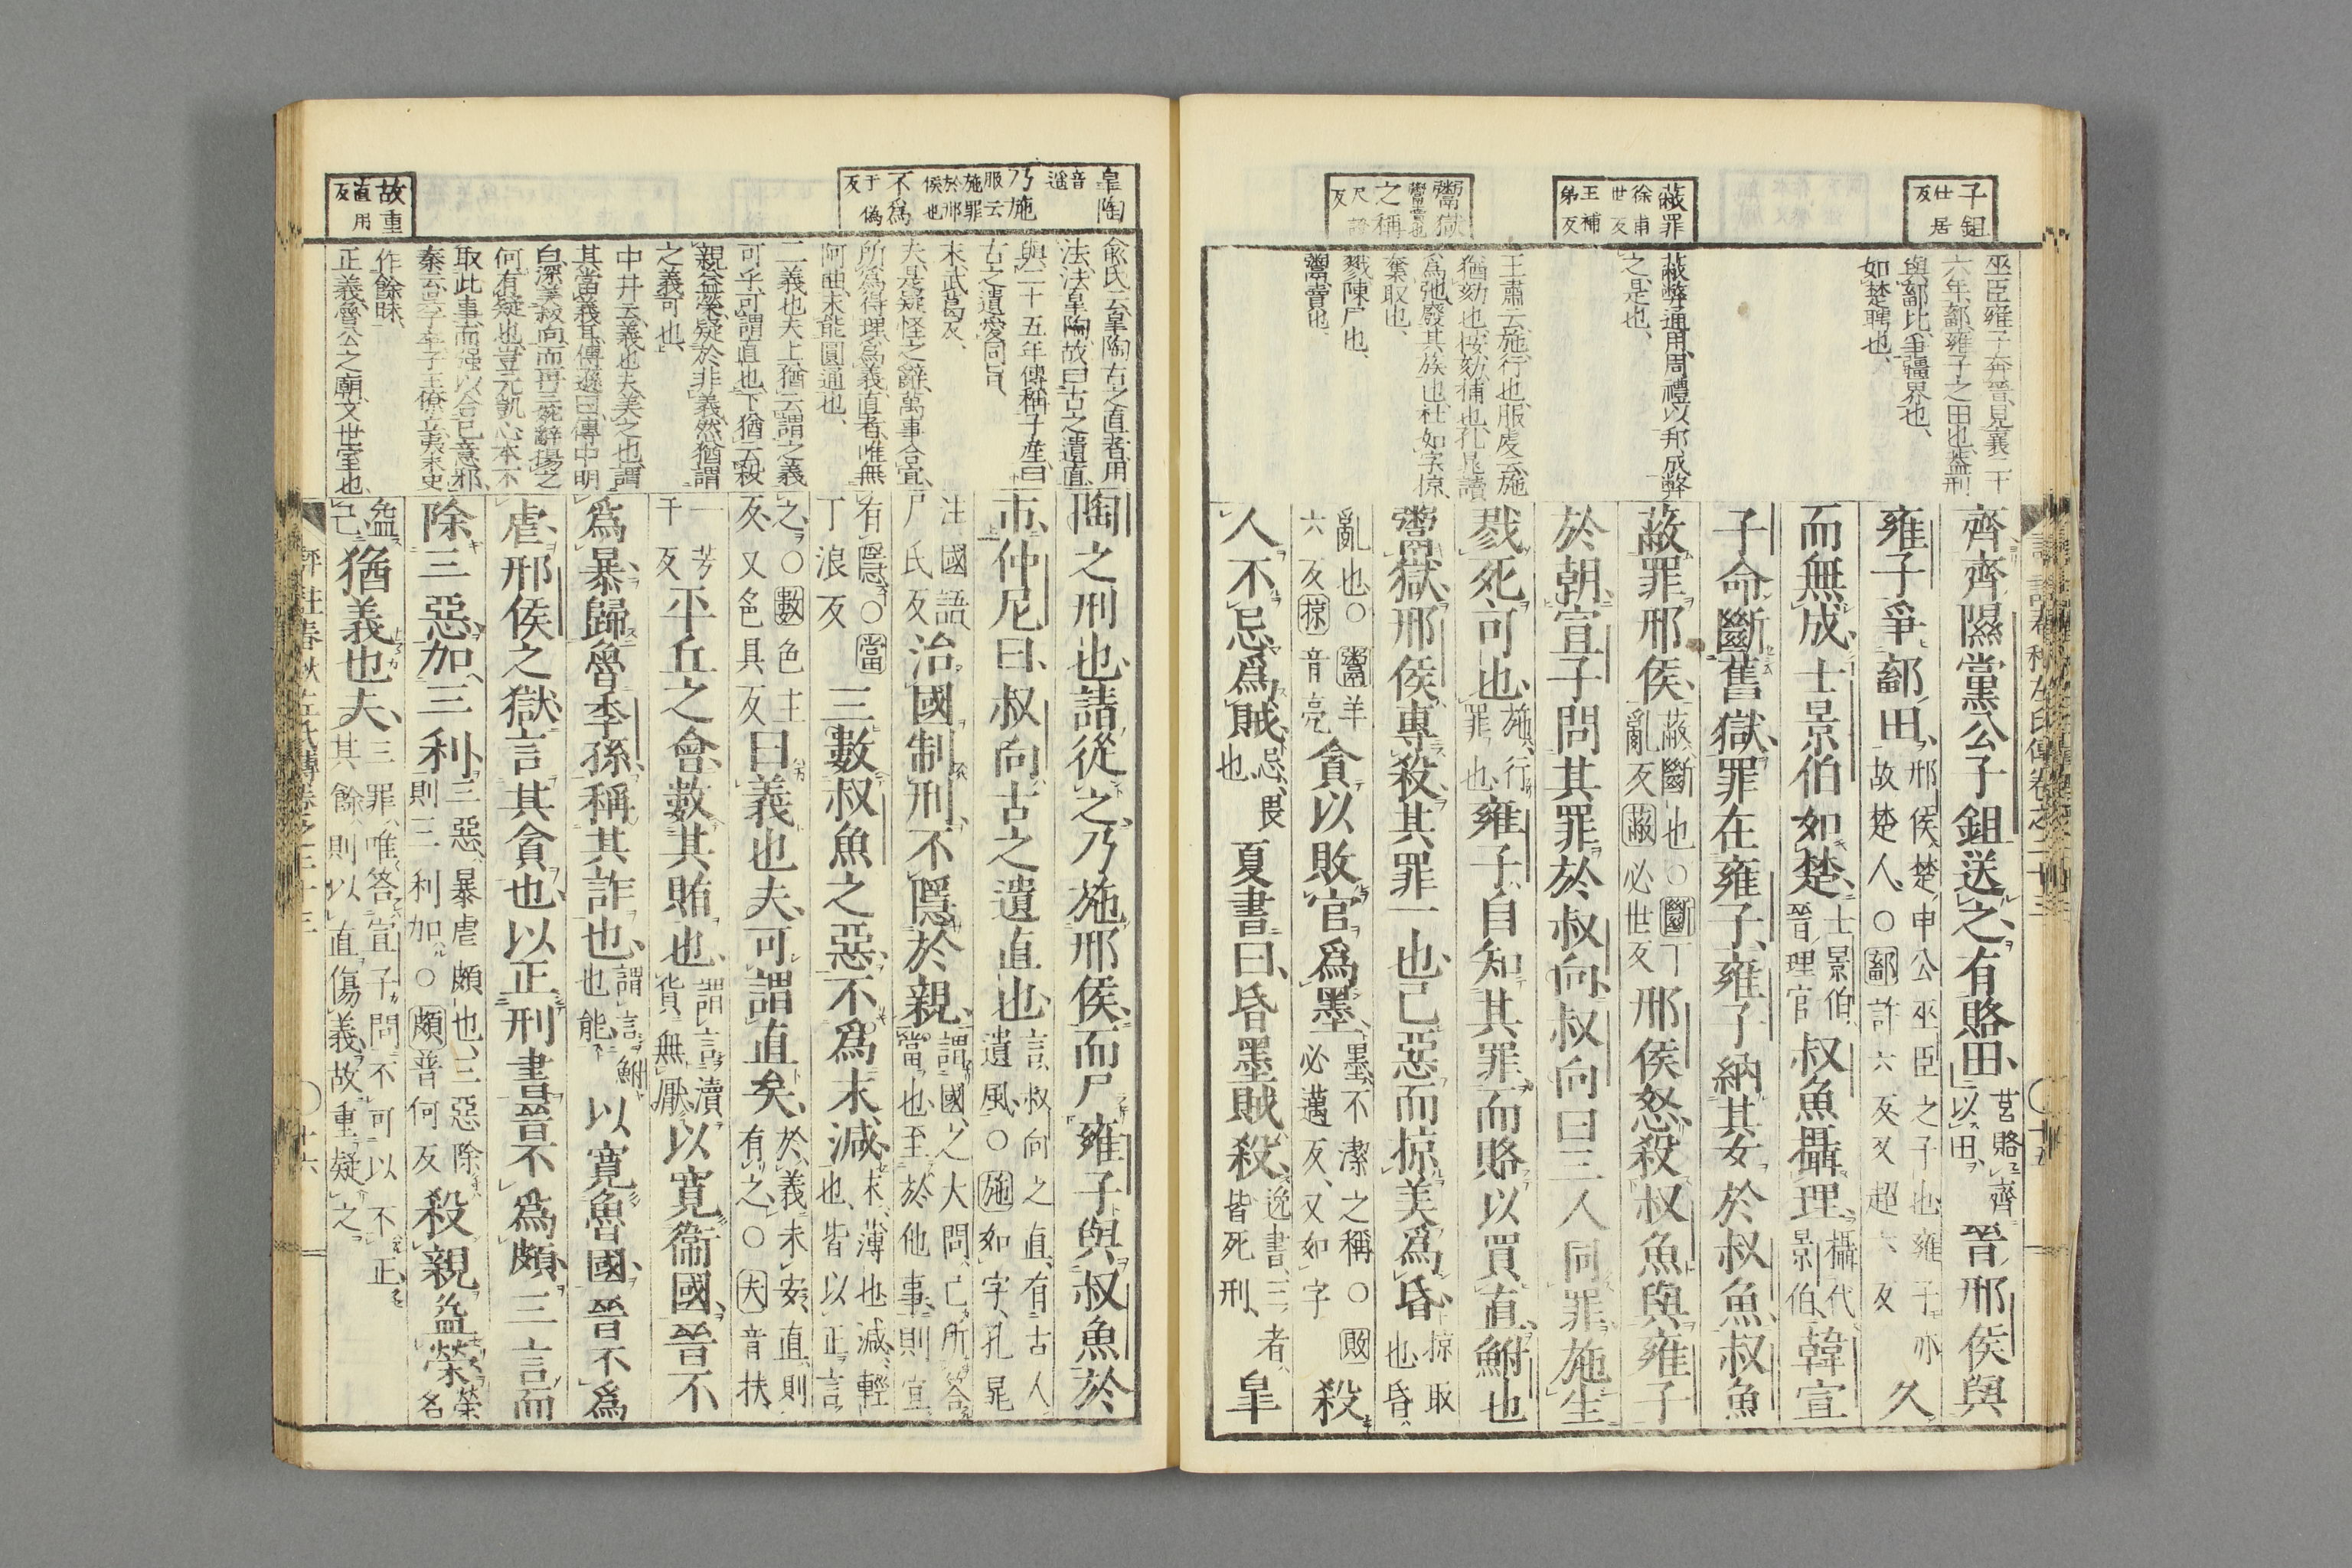 子鉏
仕居
反
蔽罪
徐甫
世反
王補
弟反
鬻獄
鬻賣也
之稱
尺證
反
巫臣雍子奔晉、見襄二十
六年、鄐、雍子之田也、蓋刑
與鄐比、爭疆界也、
如楚聘也、
蔽弊通用、周禮以邦成弊
之、是也、
王肅云、施、行也、服虔云、施
猶劾也、按劾、捕也、孔晁讀
爲弛、廢其族也、社如字、掠
奪取也、
戮、陳尸也、
鬻、賣也、
齊齊隰黨公子鉏送之、有賂田、
莒賂齊
以田、
晉邢侯與
雍子爭鄐田、
邢侯、楚申公巫臣之子也、雍子亦
故楚人、○鄐許六反又超六反
久
而無成、士景伯如楚、
士景伯、
晉理官
叔魚攝理、
攝代
景伯、
韓宣
子命斷舊獄、罪在雍子、雍子納其女於叔魚、叔魚
蔽罪邢侯、
蔽、斷也○斷丁
亂反蔽必世反
邢侯怒、殺叔魚與雍子
於朝、宣子問其罪於叔向、叔向曰三人同罪、施生
戮死、可也、
施、行
罪也、
雍子自知其罪、而賂以買直、鮒也
鬻獄、邢侯專殺、其罪一也、己惡而掠美爲昏、
掠取
也、昏、
亂也○鬻羊
六反掠音亮
貪以敗官爲墨、
墨、不潔之稱○敗
必邁反、又如字
殺
人不忌、爲賊、
忌、畏
也
夏書曰、昏墨賊殺、
逸書、三者、
皆死刑、
皐
評註春秋左氏傳卷之二十三
○十五
皐陶
音遙
乃施
服云
施罪
於邢
侯也
不爲
于僞
反
故重
直用
反
兪氏云、皐陶古之直者、用
法、法皐陶、故曰古之遺直、
與二十五年傳稱子產、曰
古之遺愛同旨、
末、武葛反、
夫、是疑怪之辭、萬事合宜、
所爲得理爲義、直者唯無
阿曲、未能圓通也、
二義也夫、上猶云謂之義
可乎、可謂直也、下猶云殺
親益榮、疑於非義、然猶謂
之義可也、
中井云、義也夫、美之也、謂
其當義耳、傳遜曰、傳中明
白深美叔向、而再三婉辭揚之
何有疑也、豈元凱心本不
取此事、而强以合己意邪、
作餘昧、
正義、魯公之廟、文世室也、
陶之刑也、請從之、乃施邢侯、而尸雍子與叔魚於
市、仲尼曰、叔向古之遺直也、
言叔向之直、有古人
遺風、○施如字、孔晁
注國語
尸氏反
治國制刑、不隱於親、
謂國之大問、己所答
當也、至於他事、則宜
有隱、○當
丁浪反
三數叔魚之惡、不爲末減、
末、薄也、減、輕
也、皆以正言
之、○數色主
反、又色具反
曰義也夫、可謂直矣、
於義未安、直則
有之、○夫音扶
一芳
干反
平丘之會、數其賄也、
謂言瀆
貨無厭
以寬衞國、晉不
爲暴、歸魯季孫、稱其詐也、
謂言鮒
也能、
以寬魯國、晉不爲
虐、邢侯之獄、言其貪也、以正刑書、晉不爲頗、三言而
除三惡、加三利、
三惡、暴虐頗也、三惡除、
則三利加、○頗普何反
殺親益榮、
榮名
益
己
猶義也夫、
三罪、唯答宣子問、不可以不正、
其餘則以直傷義、故重疑之、
評註春秋左氏傳卷之二十三
○十六